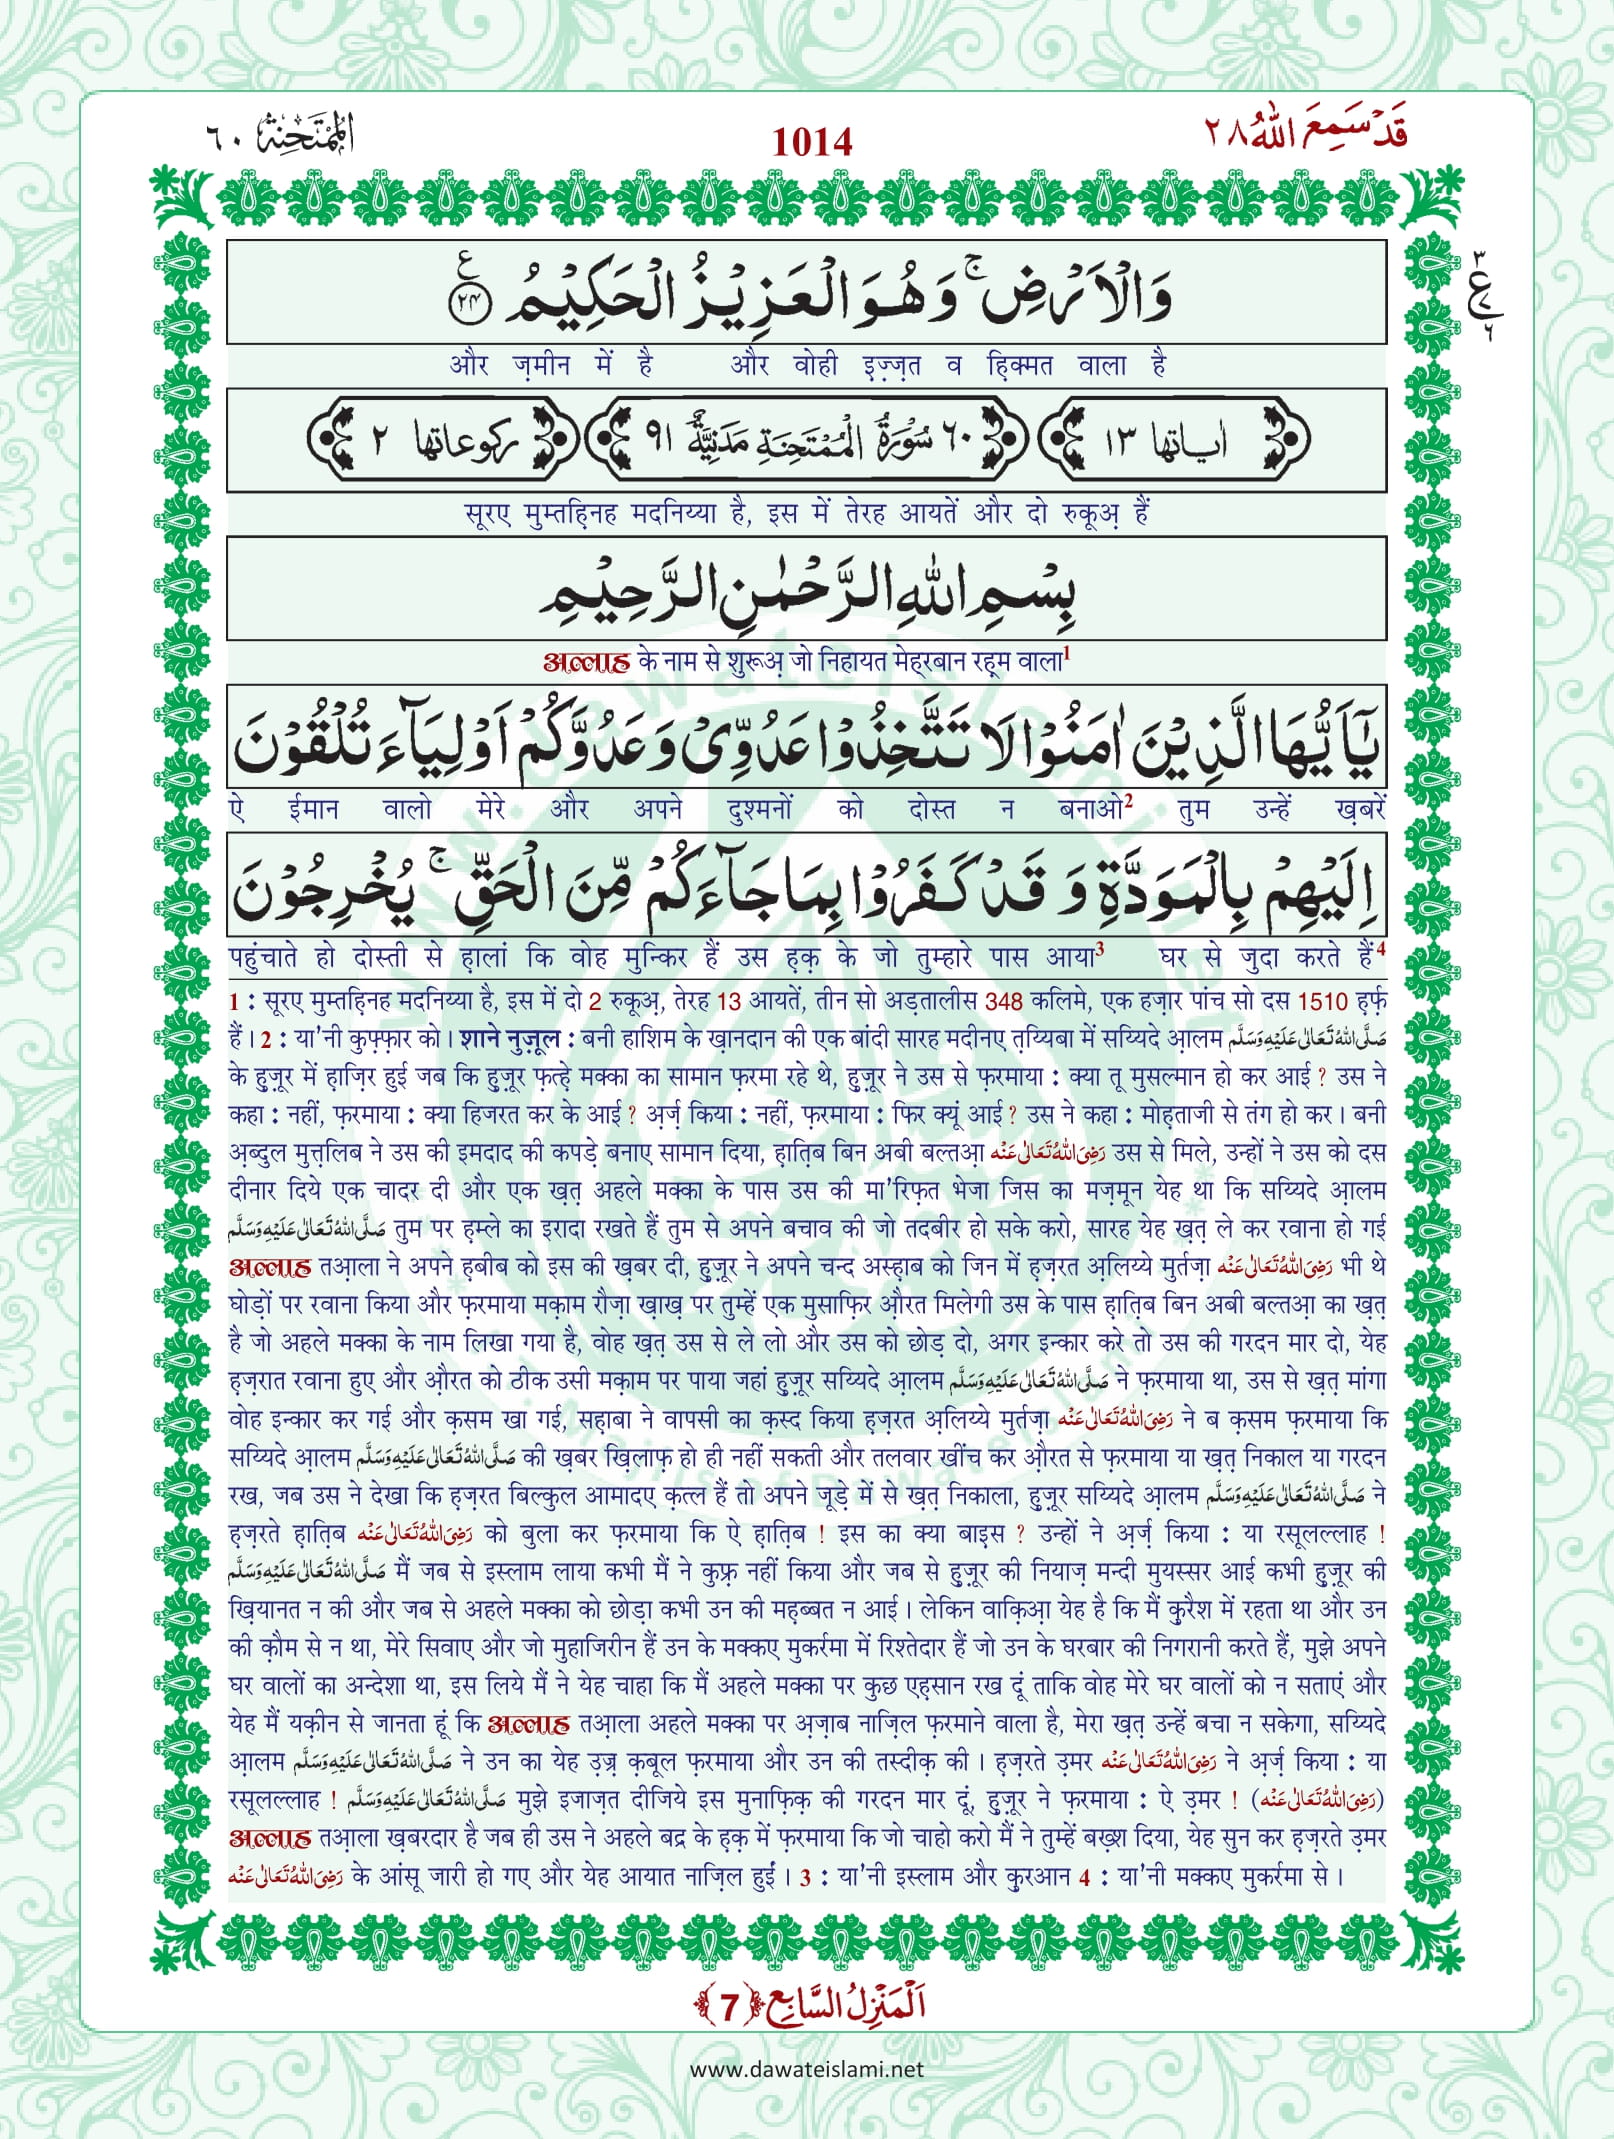 قَدْ سَمِعَ اللّٰهُ ٢٨
1014
الْمُمْتَحِنَة ٦٠
وَالْاَرْضِ ۚ وَهُوَ الْعَزِيْزُ الْحَكِيْمُ ﴿۲۴﴾ ع
٣ ع ٦
और ज़मीन में है और वोही इ़ज़्ज़त व ह़िक्मत वाला है
اٰیاتها ١٣ ٦٠ سُوْرَةُ الْمُمْتَحِنَةِ مَدَنِيَّةٌ ٩١ رکوعاتها ٢
सूरए मुम्तहि़नह मदनिय्या है, इस में तेरह आयतें और दो रुकूअ़ हैं
بِسْمِ اللّٰهِ الرَّحْمٰنِ الرَّحِيْمِ
अल्लाह के नाम से शुरूअ़ जो निहायत मेह्रबान रह़्म वाला1
يٰۤاَيُّهَا الَّذِيْنَ اٰمَنُوْا لَا تَتَّخِذُوْا عَدُوِّيْ وَعَدُوَّكُمْ اَوْلِيَآءَ تُلْقُوْنَ
ऐ ईमान वालो मेरे और अपने दुश्मनों को दोस्त न बनाओ2 तुम उन्हें ख़बरें
اِلَيْهِمْ بِالْمَوَدَّةِ وَ قَدْ كَفَرُوْا بِمَا جَآءَكُمْ مِّنَ الْحَقِّ ۚ يُخْرِجُوْنَ
पहुंचाते हो दोस्ती से ह़ालां कि वोह मुन्किर हैं उस ह़क़ के जो तुम्हारे पास आया3 घर से जुदा करते हैं4
1 : सूरए मुम्तहि़नह मदनिय्या है, इस में दो 2 रुकूअ़, तेरह 13 आयतें, तीन सो अड़तालीस 348 कलिमे, एक हज़ार पांच सो दस 1510 ह़र्फ़
हैं। 2 : या'नी कुफ़्फ़ार को। शाने नुज़ूल : बनी हाशिम के ख़ानदान की एक बांदी सारह मदीनए त़य्यिबा में सय्यिदे आ़लम صَلَّى اللّٰهُ تَعَالٰى عَلَيْهِ وَسَلَّم
के ह़ुज़ूर में ह़ाज़िर हुई जब कि ह़ुज़ूर फ़त्ह़े मक्का का सामान फ़रमा रहे थे, ह़ुज़ूर ने उस से फ़रमाया : क्या तू मुसल्मान हो कर आई? उस ने
कहा : नहीं, फ़रमाया : क्या हिजरत कर के आई? अ़र्ज़ किया : नहीं, फ़रमाया : फिर क्यूं आई? उस ने कहा : मोह़ताजी से तंग हो कर। बनी
अ़ब्दुल मुत्त़लिब ने उस की इमदाद की कपड़े बनाए सामान दिया, ह़ात़िब बिन अबी बल्तआ़ رَضِیَ اللّٰهُ تَعَالٰی عَنْه उस से मिले, उन्हों ने उस को दस
दीनार दिये एक चादर दी और एक ख़त़ अहले मक्का के पास उस की मा'रिफ़त भेजा जिस का मज़्मून येह था कि सय्यिदे आ़लम
صَلَّى اللّٰهُ تَعَالٰى عَلَيْهِ وَسَلَّم तुम पर ह़म्ले का इरादा रखते हैं तुम से अपने बचाव की जो तदबीर हो सके करो, सारह येह ख़त़ ले कर रवाना हो गई
अल्लाह तआ़ला ने अपने ह़बीब को इस की ख़बर दी, ह़ुज़ूर ने अपने चन्द अस्ह़ाब को जिन में ह़ज़रत अ़लिय्ये मुर्तज़ा رَضِیَ اللّٰهُ تَعَالٰی عَنْه भी थे
घोड़ों पर रवाना किया और फ़रमाया मक़ाम रौज़ा ख़ाख़ पर तुम्हें एक मुसाफ़िर औ़रत मिलेगी उस के पास ह़ात़िब बिन अबी बल्तआ़ का ख़त़
है जो अहले मक्का के नाम लिखा गया है, वोह ख़त़ उस से ले लो और उस को छोड़ दो, अगर इन्कार करे तो उस की गरदन मार दो, येह
ह़ज़रात रवाना हुए और औ़रत को ठीक उसी मक़ाम पर पाया जहां ह़ुज़ूर सय्यिदे आ़लम صَلَّى اللّٰهُ تَعَالٰى عَلَيْهِ وَسَلَّم ने फ़रमाया था, उस से ख़त़ मांगा
वोह इन्कार कर गई और क़सम खा गई, सह़ाबा ने वापसी का क़स्द किया ह़ज़रत अ़लिय्ये मुर्तज़ा رَضِیَ اللّٰهُ تَعَالٰی عَنْه ने ब क़सम फ़रमाया कि
सय्यिदे आ़लम صَلَّى اللّٰهُ تَعَالٰى عَلَيْهِ وَسَلَّم की ख़बर ख़िलाफ़ हो ही नहीं सकती और तलवार खींच कर औ़रत से फ़रमाया या ख़त़ निकाल या गरदन
रख, जब उस ने देखा कि ह़ज़रत बिल्कुल आमादए क़त्ल हैं तो अपने जूड़े में से ख़त़ निकाला, ह़ुज़ूर सय्यिदे आ़लम صَلَّى اللّٰهُ تَعَالٰى عَلَيْهِ وَسَلَّم ने
ह़ज़रते ह़ात़िब رَضِیَ اللّٰهُ تَعَالٰی عَنْه को बुला कर फ़रमाया कि ऐ ह़ात़िब ! इस का क्या बाइस ? उन्हों ने अ़र्ज़ किया : या रसूलल्लाह !
صَلَّى اللّٰهُ تَعَالٰى عَلَيْهِ وَسَلَّم मैं जब से इस्लाम लाया कभी मैं ने कुफ़्र नहीं किया और जब से ह़ुज़ूर की नियाज़ मन्दी मुयस्सर आई कभी ह़ुज़ूर की
ख़ियानत न की और जब से अहले मक्का को छोड़ा कभी उन की मह़ब्बत न आई। लेकिन वाक़िआ़ येह है कि मैं क़ुरैश में रहता था और उन
की क़ौम से न था, मेरे सिवाए और जो मुहाजिरीन हैं उन के मक्कए मुकर्रमा में रिश्तेदार हैं जो उन के घरबार की निगरानी करते हैं, मुझे अपने
घर वालों का अन्देशा था, इस लिये मैं ने येह चाहा कि मैं अहले मक्का पर कुछ एह़सान रख दूं ताकि वोह मेरे घर वालों को न सताएं और
येह मैं यक़ीन से जानता हूं कि अल्लाह तआ़ला अहले मक्का पर अ़ज़ाब नाज़िल फ़रमाने वाला है, मेरा ख़त़ उन्हें बचा न सकेगा, सय्यिदे
आ़लम صَلَّى اللّٰهُ تَعَالٰى عَلَيْهِ وَسَلَّم ने उन का येह उ़ज़्र क़बूल फ़रमाया और उन की तस्दीक़ की। ह़ज़रते उ़मर رَضِیَ اللّٰهُ تَعَالٰی عَنْه ने अ़र्ज़ किया : या
रसूलल्लाह ! صَلَّى اللّٰهُ تَعَالٰى عَلَيْهِ وَسَلَّم मुझे इजाज़त दीजिये इस मुनाफ़िक़ की गरदन मार दूं, ह़ुज़ूर ने फ़रमाया : ऐ उ़मर ! (رَضِیَ اللّٰهُ تَعَالٰی عَنْه)
अल्लाह तआ़ला ख़बरदार है जब ही उस ने अहले बद्र के ह़क़ में फ़रमाया कि जो चाहो करो मैं ने तुम्हें बख़्श दिया, येह सुन कर ह़ज़रते उ़मर
رَضِیَ اللّٰهُ تَعَالٰی عَنْه के आंसू जारी हो गए और येह आयात नाज़िल हुईं। 3 : या'नी इस्लाम और क़ुरआन 4 : या'नी मक्कए मुकर्रमा से।
اَلْمَنْزِلُ السَّابِع ﴿7﴾
www.dawateislami.net